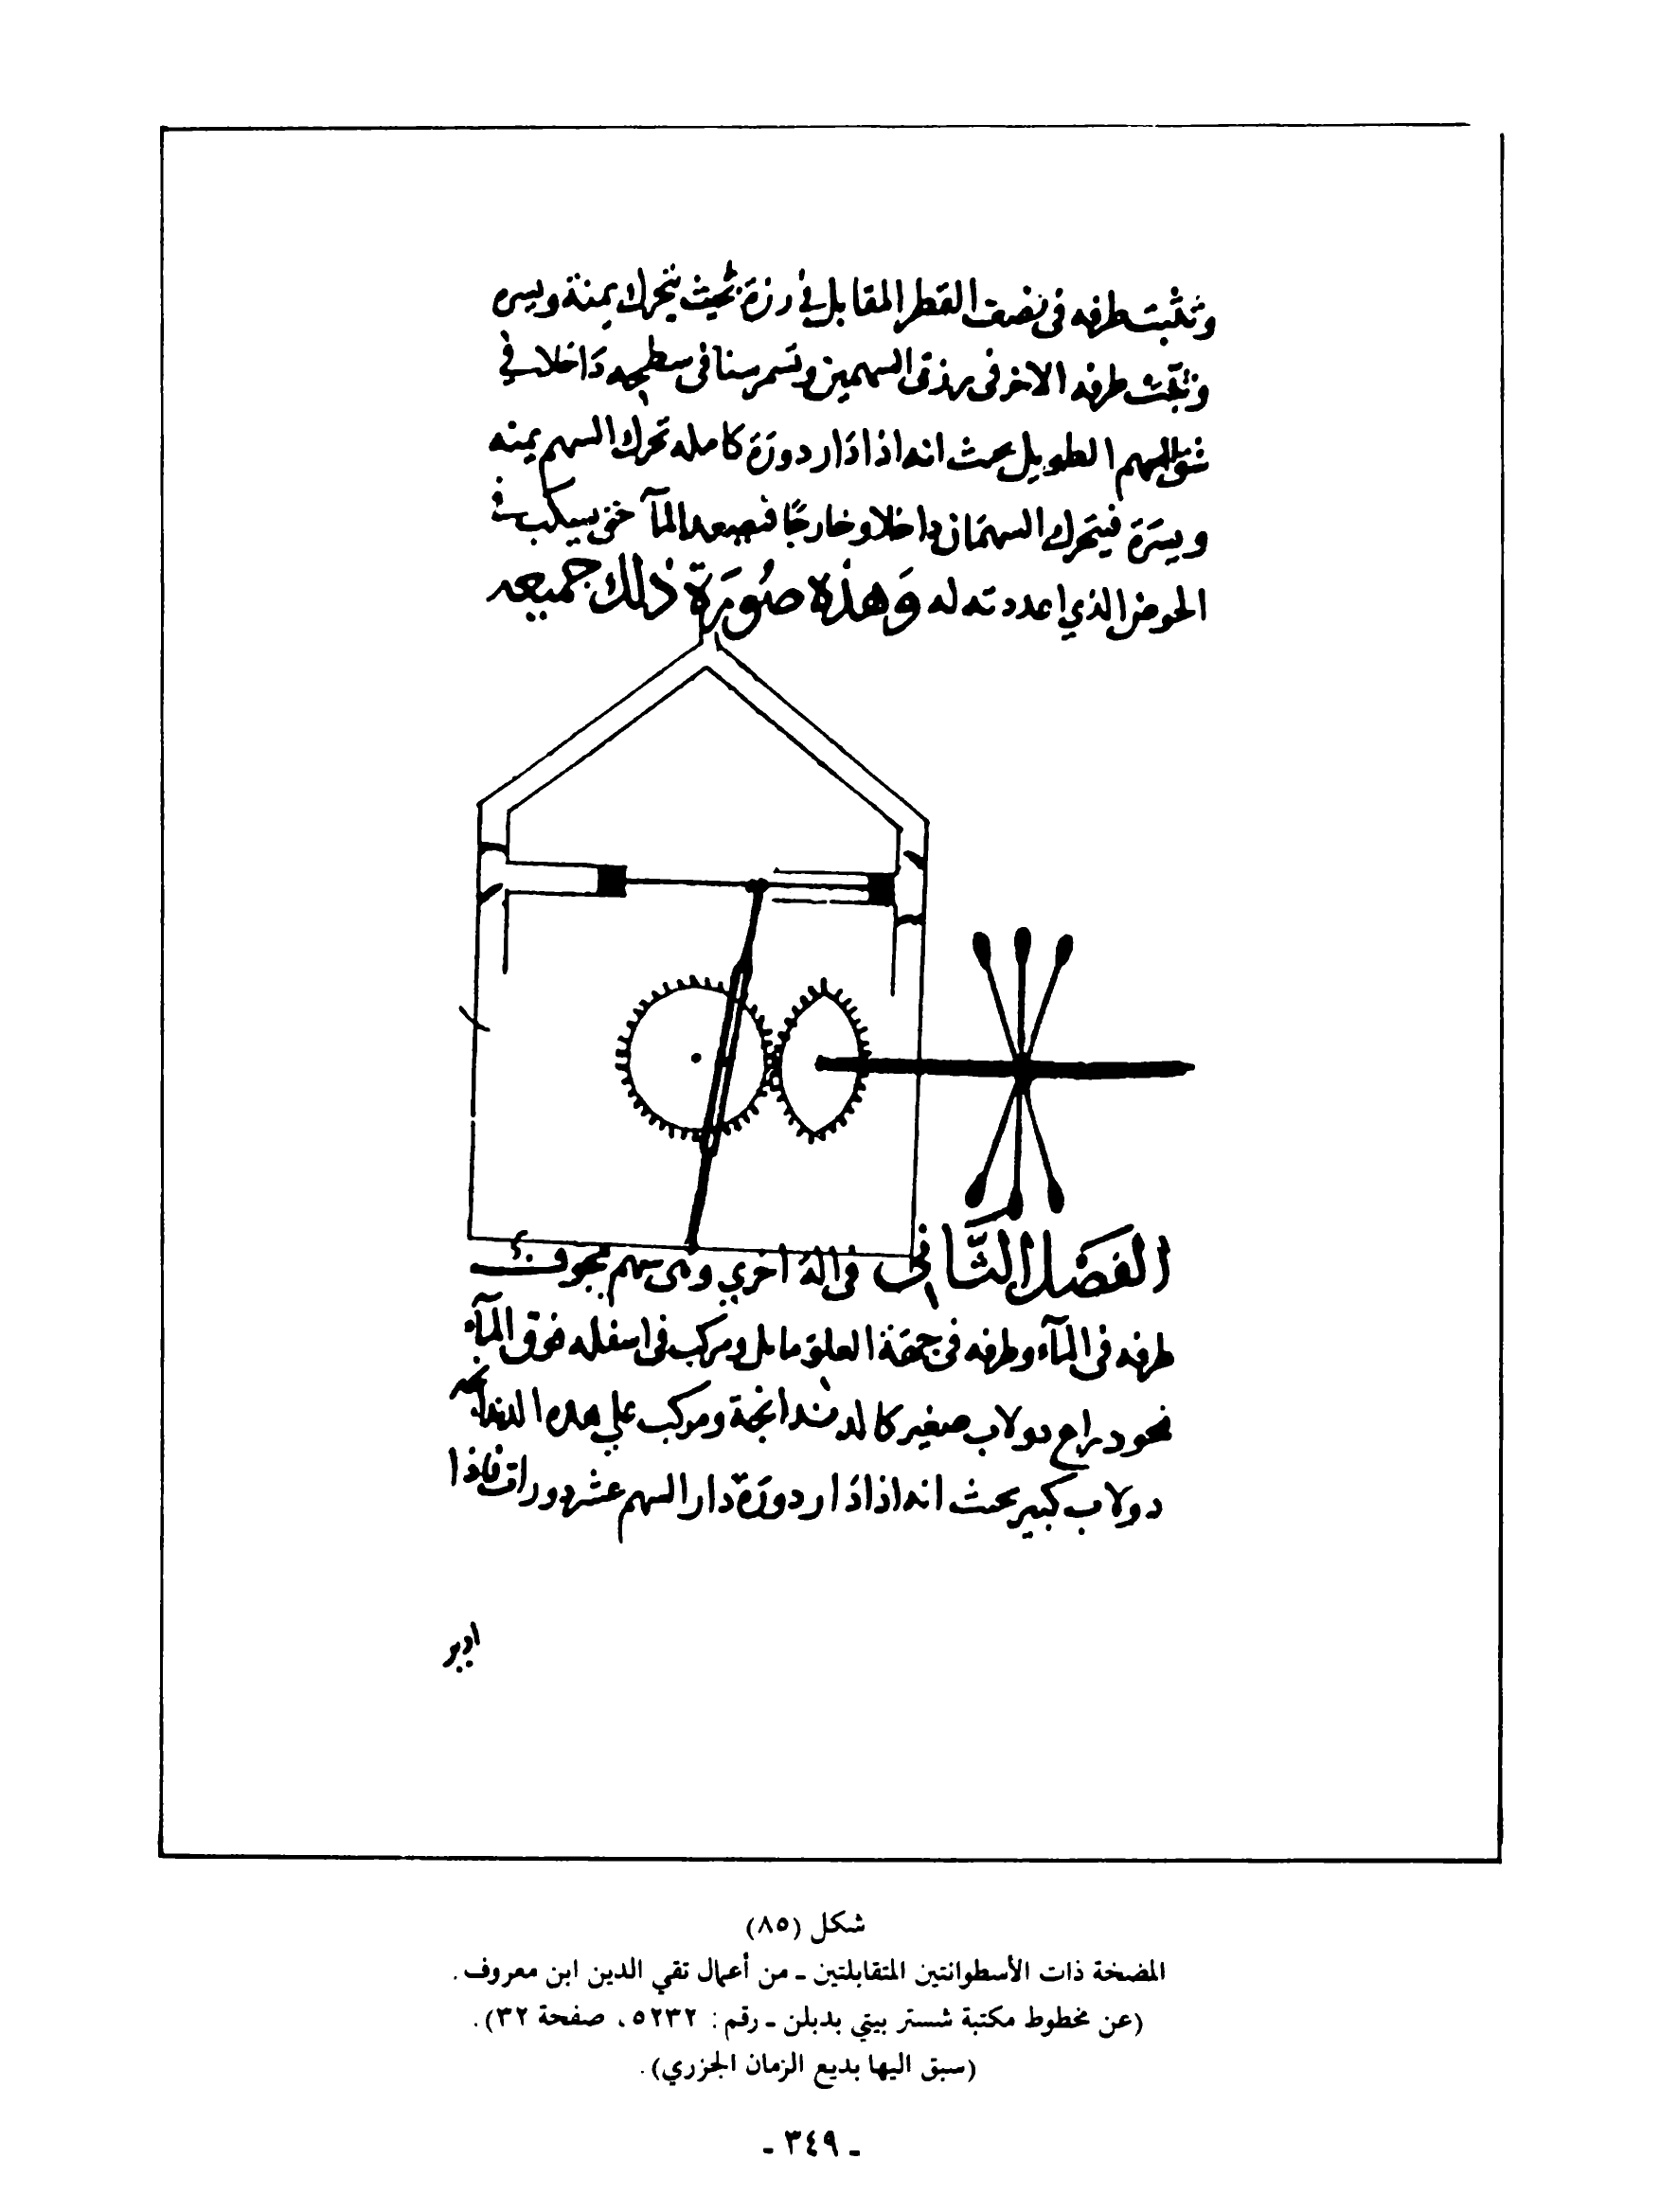 وتثبت طرفه فى نصف القطر المقابل في رزة بحيث يتحرك يمنة ويسره
وتثبت طرفه الاخر فى رزتى السهمين وتسمر سنا فى سطحه داخلا في
شق السهم الطويل بحيث انه اذا دار دورة كامله تحرك السهم يمنه
ويسرة فيتحرك السهمان داخلا وخارجا فيصعد المآ حتى يسكب في
الحوض الذي اعددته له وهذه صورة ذلك جميعه
الفصل الثانى فى الة اخري وهى سهم مجوف
طرفه فى المآء وطرفه فى جهة العلو مايل ومركب فى اسفله فوق المآء
نحو دراع دولاب صغير كالدندانجة ومركب علي هذه الدندانجه
دولاب كبير بحيث انه اذا دار دورة دار السهم عشر دورات فاذا
شكل (٨٥)
المضخة ذات الأسطوانتين المتقابلتين - من أعمال تقي الدين ابن معروف.
(عن مخطوط مكتبة شستر بيتي بدبلن - رقم: ٥٢٣٢، صفحة ٣٢).
(سبق اليها بديع الزمان الجزري).
- ٣٤٩ -